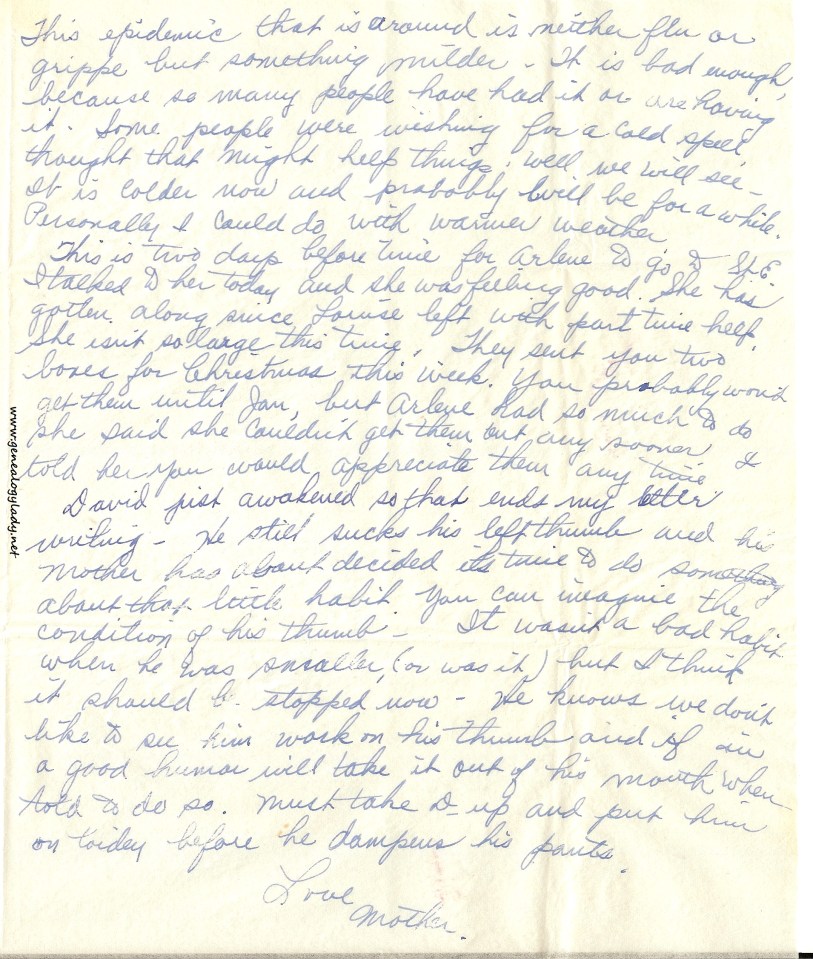 This epidemic that is around is neither flu or
grippe but something milder - It is bad enough,
because so many people have had it or are having
it. Some people were wishing for a cold spell
thought that might help things. Well, we will see -
It is colder now and probably will be for a while.
Personally I could do with warmer weather
This is two days before time for Arlene to go to St. E.
I talked to her today and she was feeling good. She has
gotten along since Louise left with part time help.
She isn't so large this time. They sent you two
boxes for Christmas this week. You probably won't
get them until Jan, but Arlene had so much to do
she said she couldn't get them out any sooner I
told her you would appreciate them any time
David just awakened so that ends my letter
writing - He still sucks his left thumb and his
Mother has about decided its time to do something
about that little habit. You can imagine the
condition of his thumb - It wasn't a bad habit
when he was smaller, (or was it) but I think
it should be stopped now - He knows we don't
like to see him work on his thumb and if in
a good humor will take it out of his mouth when
told to do so. Must take D- up and put him
on toidey before he dampens his pants.
Love
Mother.
www.genealogylady.net